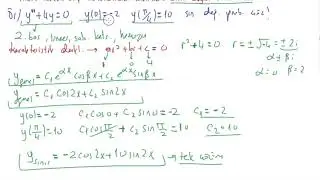 Ör/ y'' + 4y = 0 y(0) = -2 y(π/4) = 10 sın değ. prob. çöz!
2. bas, lineer, sab. kats., homogen
karakteristik denkl. ar² + br + c = 0 r² + 4 = 0 r = ±√-4 = ±2i
α ± βi
y_genel = c₁ e^{αx} cos βx + c₂ e^{αx} sin βx α = 0 β = 2
y_genel = c₁ cos2x + c₂ sin2x
y(0) = -2 c₁ cos0 + c₂ sin0 = -2 c₁ = -2
y(π/4) = 10 c₁ cos π/2 + c₂ sin π/2 = 10 c₂ = 10
y = -2cos2x + 10 sin2x → tek çözüm